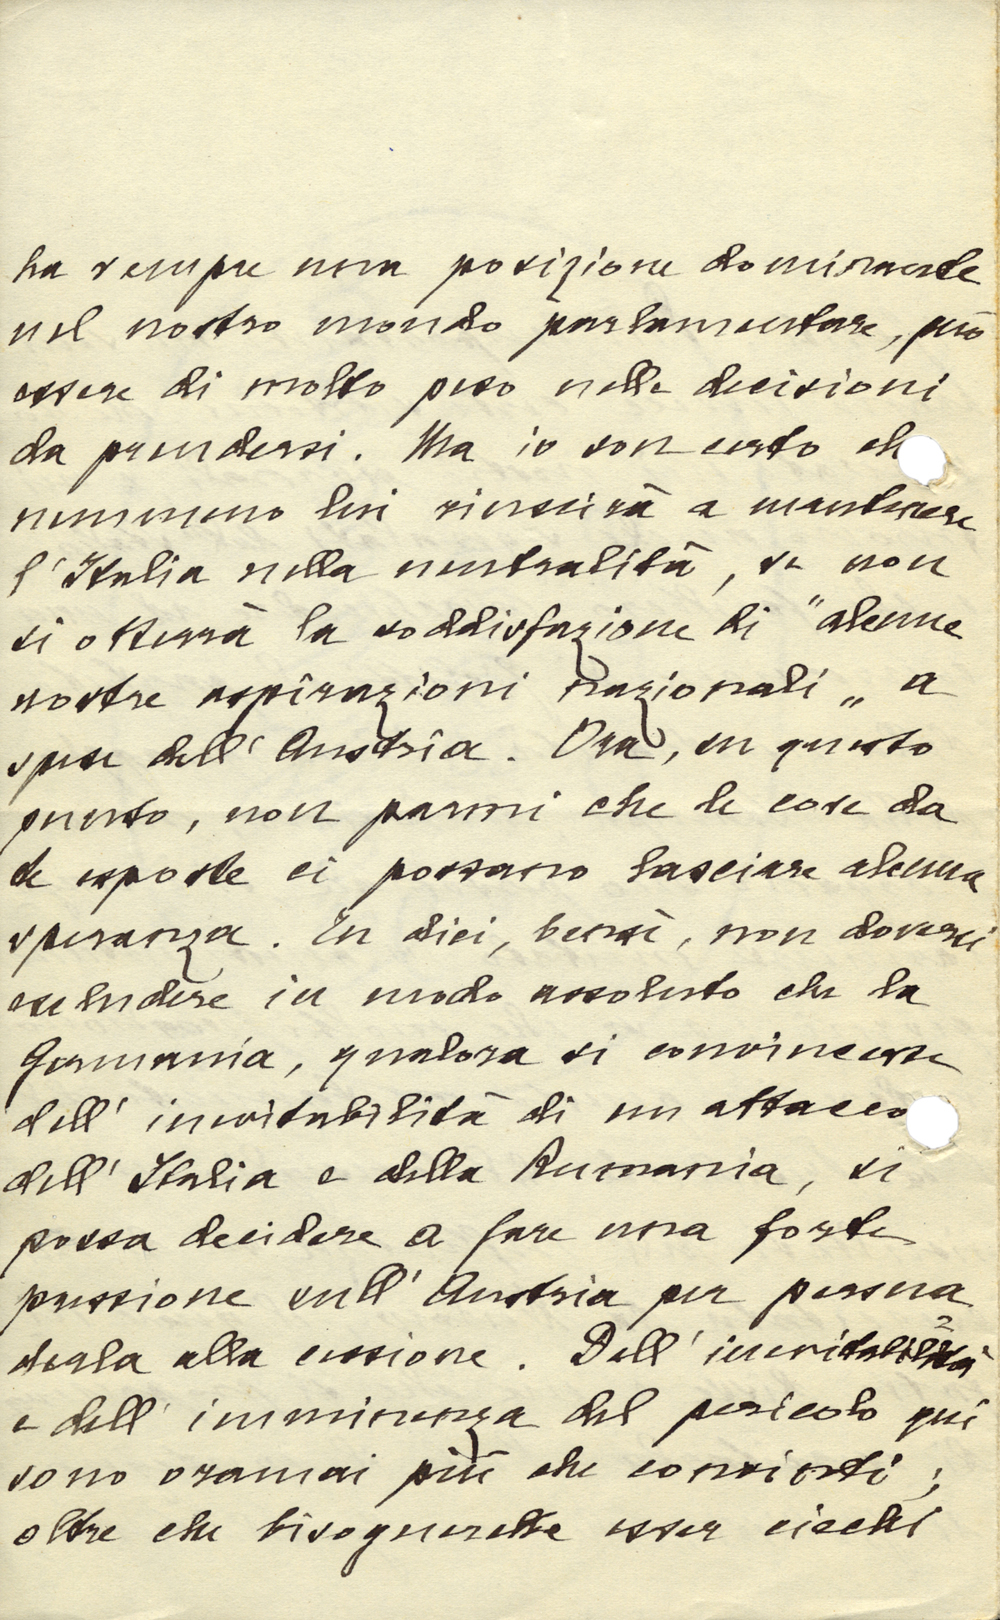 ha sempre una posizione dominante
nel nostro mondo parlamentare, può
essere di molto peso nelle decisioni
da prendersi. Ma io son certo ch
nemmeno lui riuscirà a mantenere
l'Italia nella neutralità, se non
si otterrà la soddisfazione di "alcune
nostre aspirazioni nazionali„ a
spese dell'Austria. Ora, su questo
punto, non parmi che le cose da
te esposte ci possano lasciare alcuna
speranza. Tu dici, bensì, non doversi
escludere in modo assoluto che la
Germania, qualora si convincesse
dell'inevitabilità di un attacco
dell'Italia e della Rumania, si
possa decidere a fare una forte
pressione sull'Austria per persua
derla alla cessione. Dell'inevitabilità
e dell'imminenza del pericolo qui
sono oramai più che convinti;
oltre che bisognerebbe esser ciechi